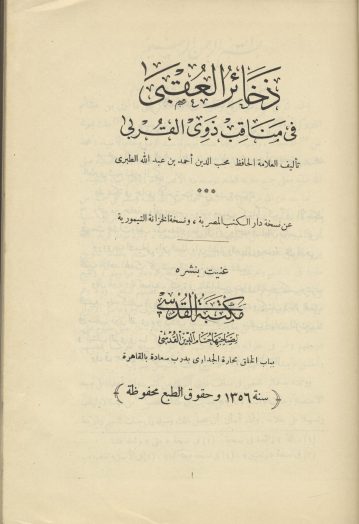 ذخائر العقبى
فى مناقب ذوى القربى
تأليف العلامة الحافظ محب الدين أحمد بن عبد الله الطبرى
عن نسخة دار الكتب المصرية، ونسخة الخزانة التيمورية
عنيت بنشره
مكتبة القدسي
لصاحبها حسام الدين القدسي
بباب الخلق بحارة الجداوى بدرب سعادة بالقاهرة
﴿ سنة ١٣٥٦ وحقوق الطبع محفوظة ﴾
١